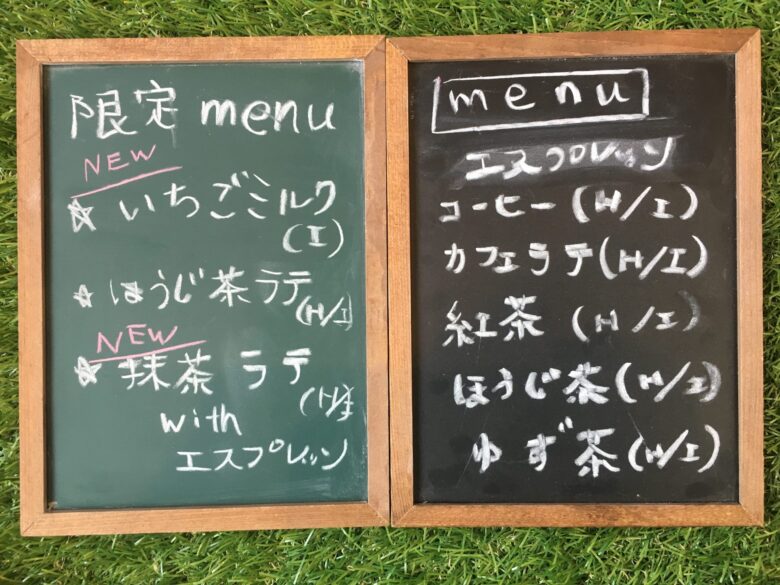 限定 menu
NEW
☆ いちごミルク
(I)
☆ ほうじ茶ラテ
(H/I)
NEW
☆ 抹茶 ラテ
(H/I)
with
エスプレッソ
menu
エスプレッソ
コーヒー (H/I)
カフェラテ(H/I)
紅茶 (H/I)
ほうじ茶(H/I)
ゆず茶(H/I)